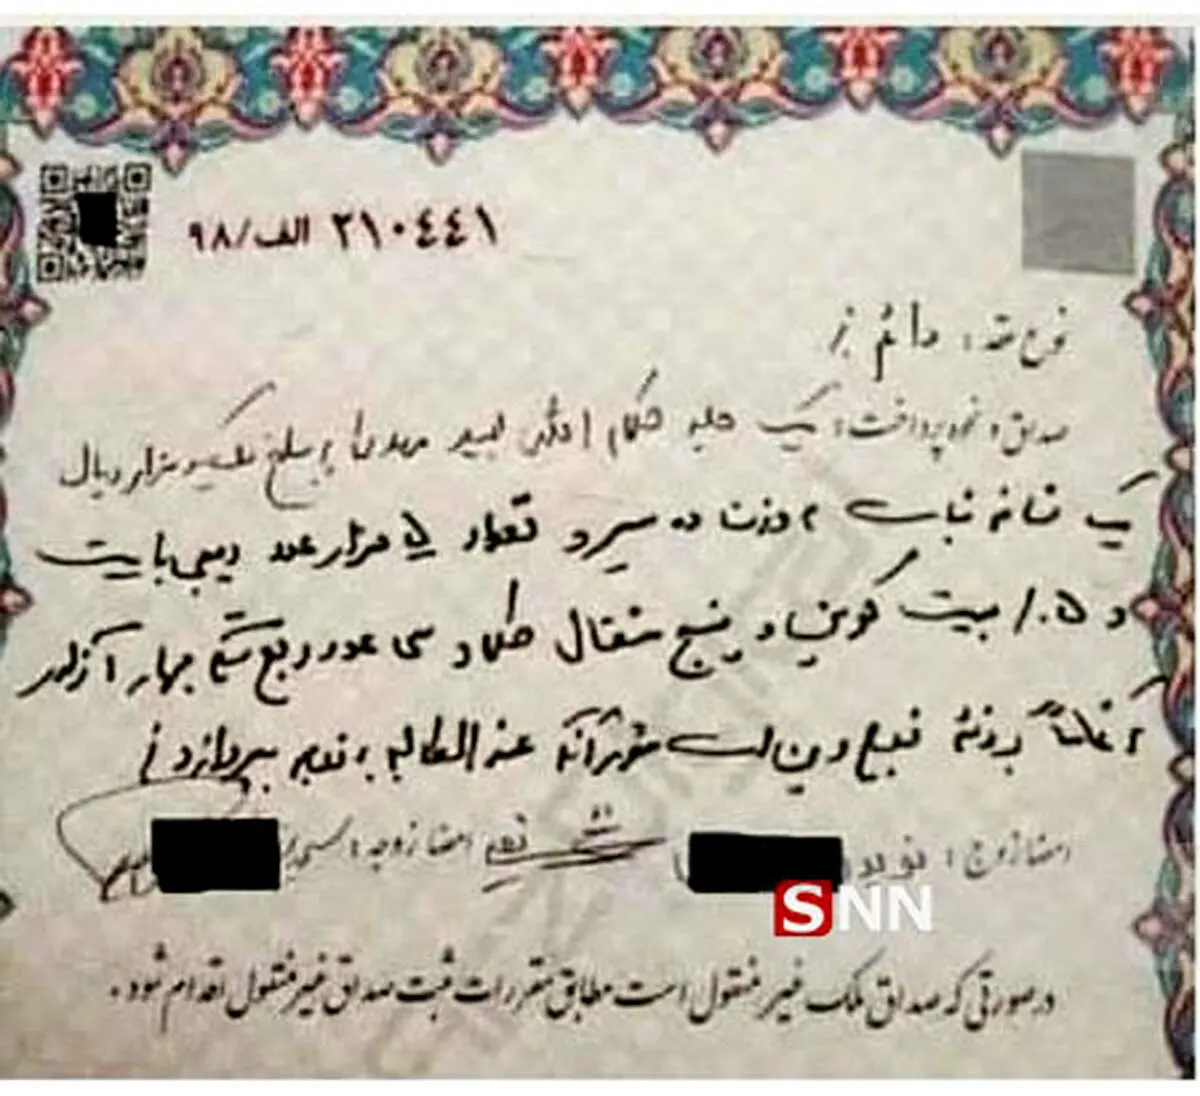 ۳۱۰۴۴۱ الف/۹۸
نوع عقد: دائم
صداق و نحوه پرداخت: یک جلد کلام الله مجید مهریه به مبلغ یکصد هزار ریال
یک شاخه نبات به وزن ده سیر و تعداد ۵ هزار عدد دیجی بایت
و ۰/۵ بیت کوین و پنج مثقال طلا و سی عدد ربع سکه بهار آزادی
که تماماً بر ذمه زوج دین است عندالمطالبه به زوجه بپردازد
امضا زوج: نوید امضا زوجه:
SNN
درصورتی که صداق ملک غیر منقول است مطابق مقررات ثبت صداق غیر منقول اقدام شود.